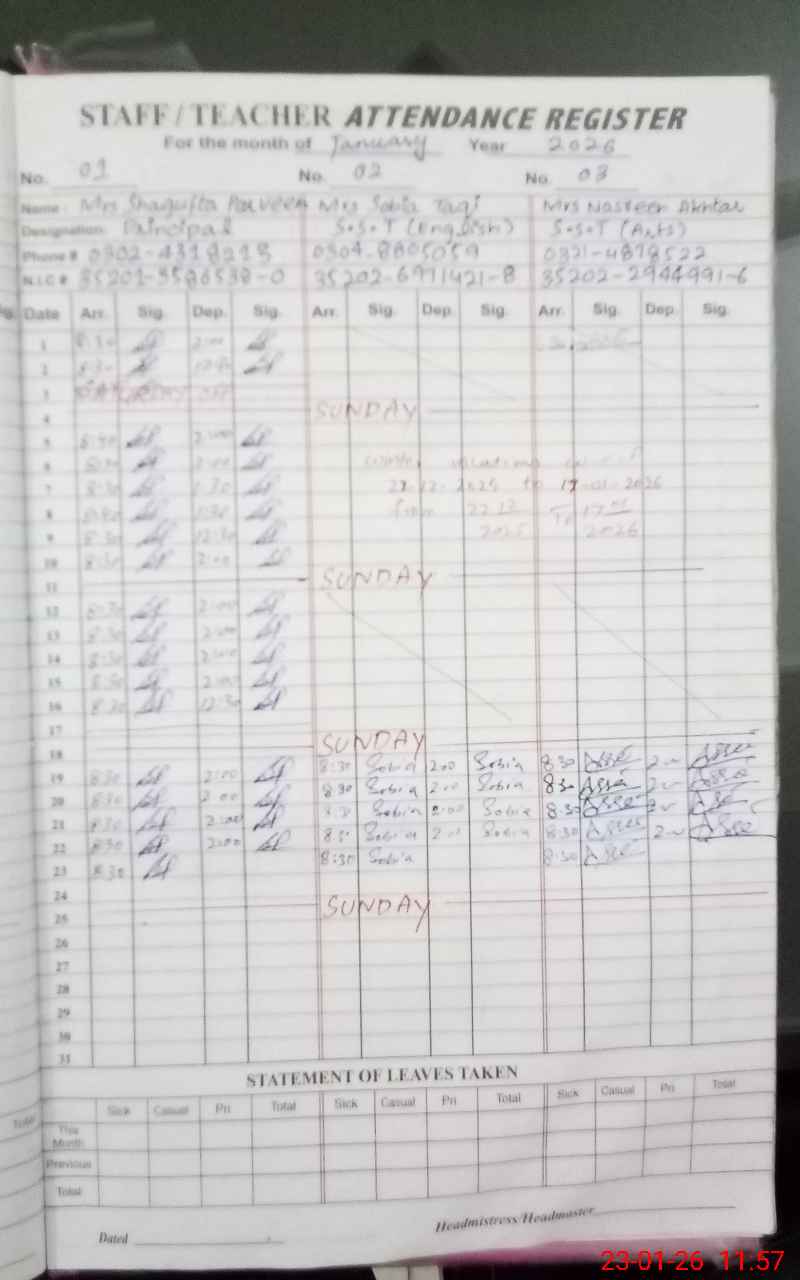 STAFF / TEACHER ATTENDANCE REGISTER
For the month of January Year 2026
No. 01 No. 02 No. 03
Name: Mrs Shagufta Parveen Mrs Sobia Taqi Mrs Nasreen Akhtar
Designation: Principal S.S.T (English) S.S.T (Arts)
Phone # 0302-4318213 0304-8805059 0321-4878522
N.I.C # 35201-3586538-0 35202-6971421-8 35202-2944991-6
Date Arr. Sig. Dep. Sig. Arr. Sig. Dep. Sig. Arr. Sig. Dep. Sig.
1 8:30 2:00
2 8:30
3 SATURDAY OFF
4 SUNDAY
5 8:30 2:00
6 8:30 2:00 Winter vacations
7 8:30 1:30 22-12-2025 to 17-01-2026
8 8:30 1:30 from 22-12 To 17-01
9 8:30 12:30 2025 2026
10 8:30 2:00
11 SUNDAY
12 8:30 2:00
13 8:30 2:00
14 8:30 2:00
15 8:30 2:00
16 8:30 12:30
17
18 SUNDAY
19 8:30 2:00 8:30 Sobia 2:00 Sobia 8:30
20 8:30 2:00 8:30 Sobia 2:00 Sobia 8:30
21 8:30 2:00 8:30 Sobia 2:00 Sobia 8:30
22 8:30 2:00 8:30 Sobia 2:00 Sobia 8:30
23 8:30 8:30 Sobia 8:30
24
25 SUNDAY
26
27
28
29
30
31
STATEMENT OF LEAVES TAKEN
Sick Casual Pri Total Sick Casual Pri Total Sick Casual Pri Total
This Month
Previous
Total
Dated Headmistress/Headmaster
23-01-26 11:57